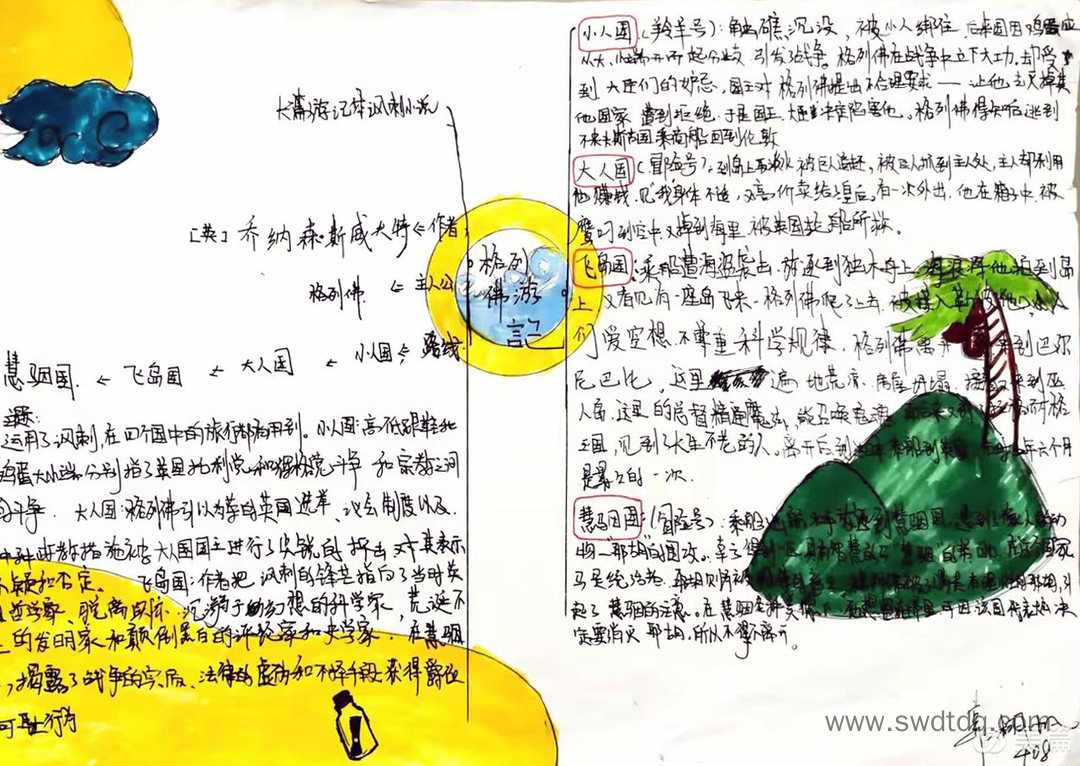 大篇游记体讽刺小说
[英] 乔纳森·斯威夫特 ← 作者
格列佛 ← 主人公
慧骃国 ← 飞岛国 ← 大人国 ← 小人国 ← 路线
格列
佛游
记
主题:
运用了讽刺,在四个国中的旅行都有用到。小人国:高低跟鞋和
鸡蛋大小端分别指了英国托利党和辉格党斗争 和宗教之间
斗争. 大人国:格列佛引以为荣的英国选举、议会制度以及
政教措施被大人国国王进行了尖锐的抨击 对其表示
疑和否定. 飞岛国:作者把讽刺的锋芒指向了当时英
哲学家、脱离实际、沉溺于幻想的科学家,荒诞不
的发明家和颠倒黑白的评论家和史学家. 在慧骃
,揭露了战争的实质、法律的虚伪和不择手段获得爵位
可耻行为
小人国(羚羊号):触礁沉没,被小人绑住,后来因用鸡蛋应
从大、小端开而起分歧,引发战争,格列佛在战争中立下大功,却受
到大臣们的妒忌,国王对格列佛提出不合理要求——让他去灭掉其
他国家 遭到拒绝.于是国王、大臣 陷害他。格列佛得知后逃到
不来夫斯古国乘商船回到伦敦
大人国(冒险号):到岛上取淡水被巨人追赶,被巨人抓到主人处,主人却利用
他赚钱.见"我"身体不适,又高价卖给皇后.有一次外出,他在箱子中,被
鹰叼到空中又掉到海里.被英国 船所救.
飞岛国:乘船遭海盗袭击.放逐到独木舟上,海浪将他 到岛
上,又看见有一座岛飞来.格列佛爬了上去.被接入 他,
们爱空想.不尊重科学规律.格列佛离开 来到巴尔
尼巴比,这里 遍地荒凉.房屋坍塌.接着又来到巫
人岛.这里的总督精通魔法,能召唤 后来又 格
王国,见到了长生不老的人。离开后到 六个月
是最 的一次.
慧骃国:(冒险号):乘船 到慧骃国,遇到
物—"那胡"的围攻. 幸 得到一 "慧骃"的帮助.
马是统治者.
起了慧骃的注意.在慧骃 可因该国代表 决
定要消灭"那胡".所以不得不离开。
408
www.swdtdq.com
美篇